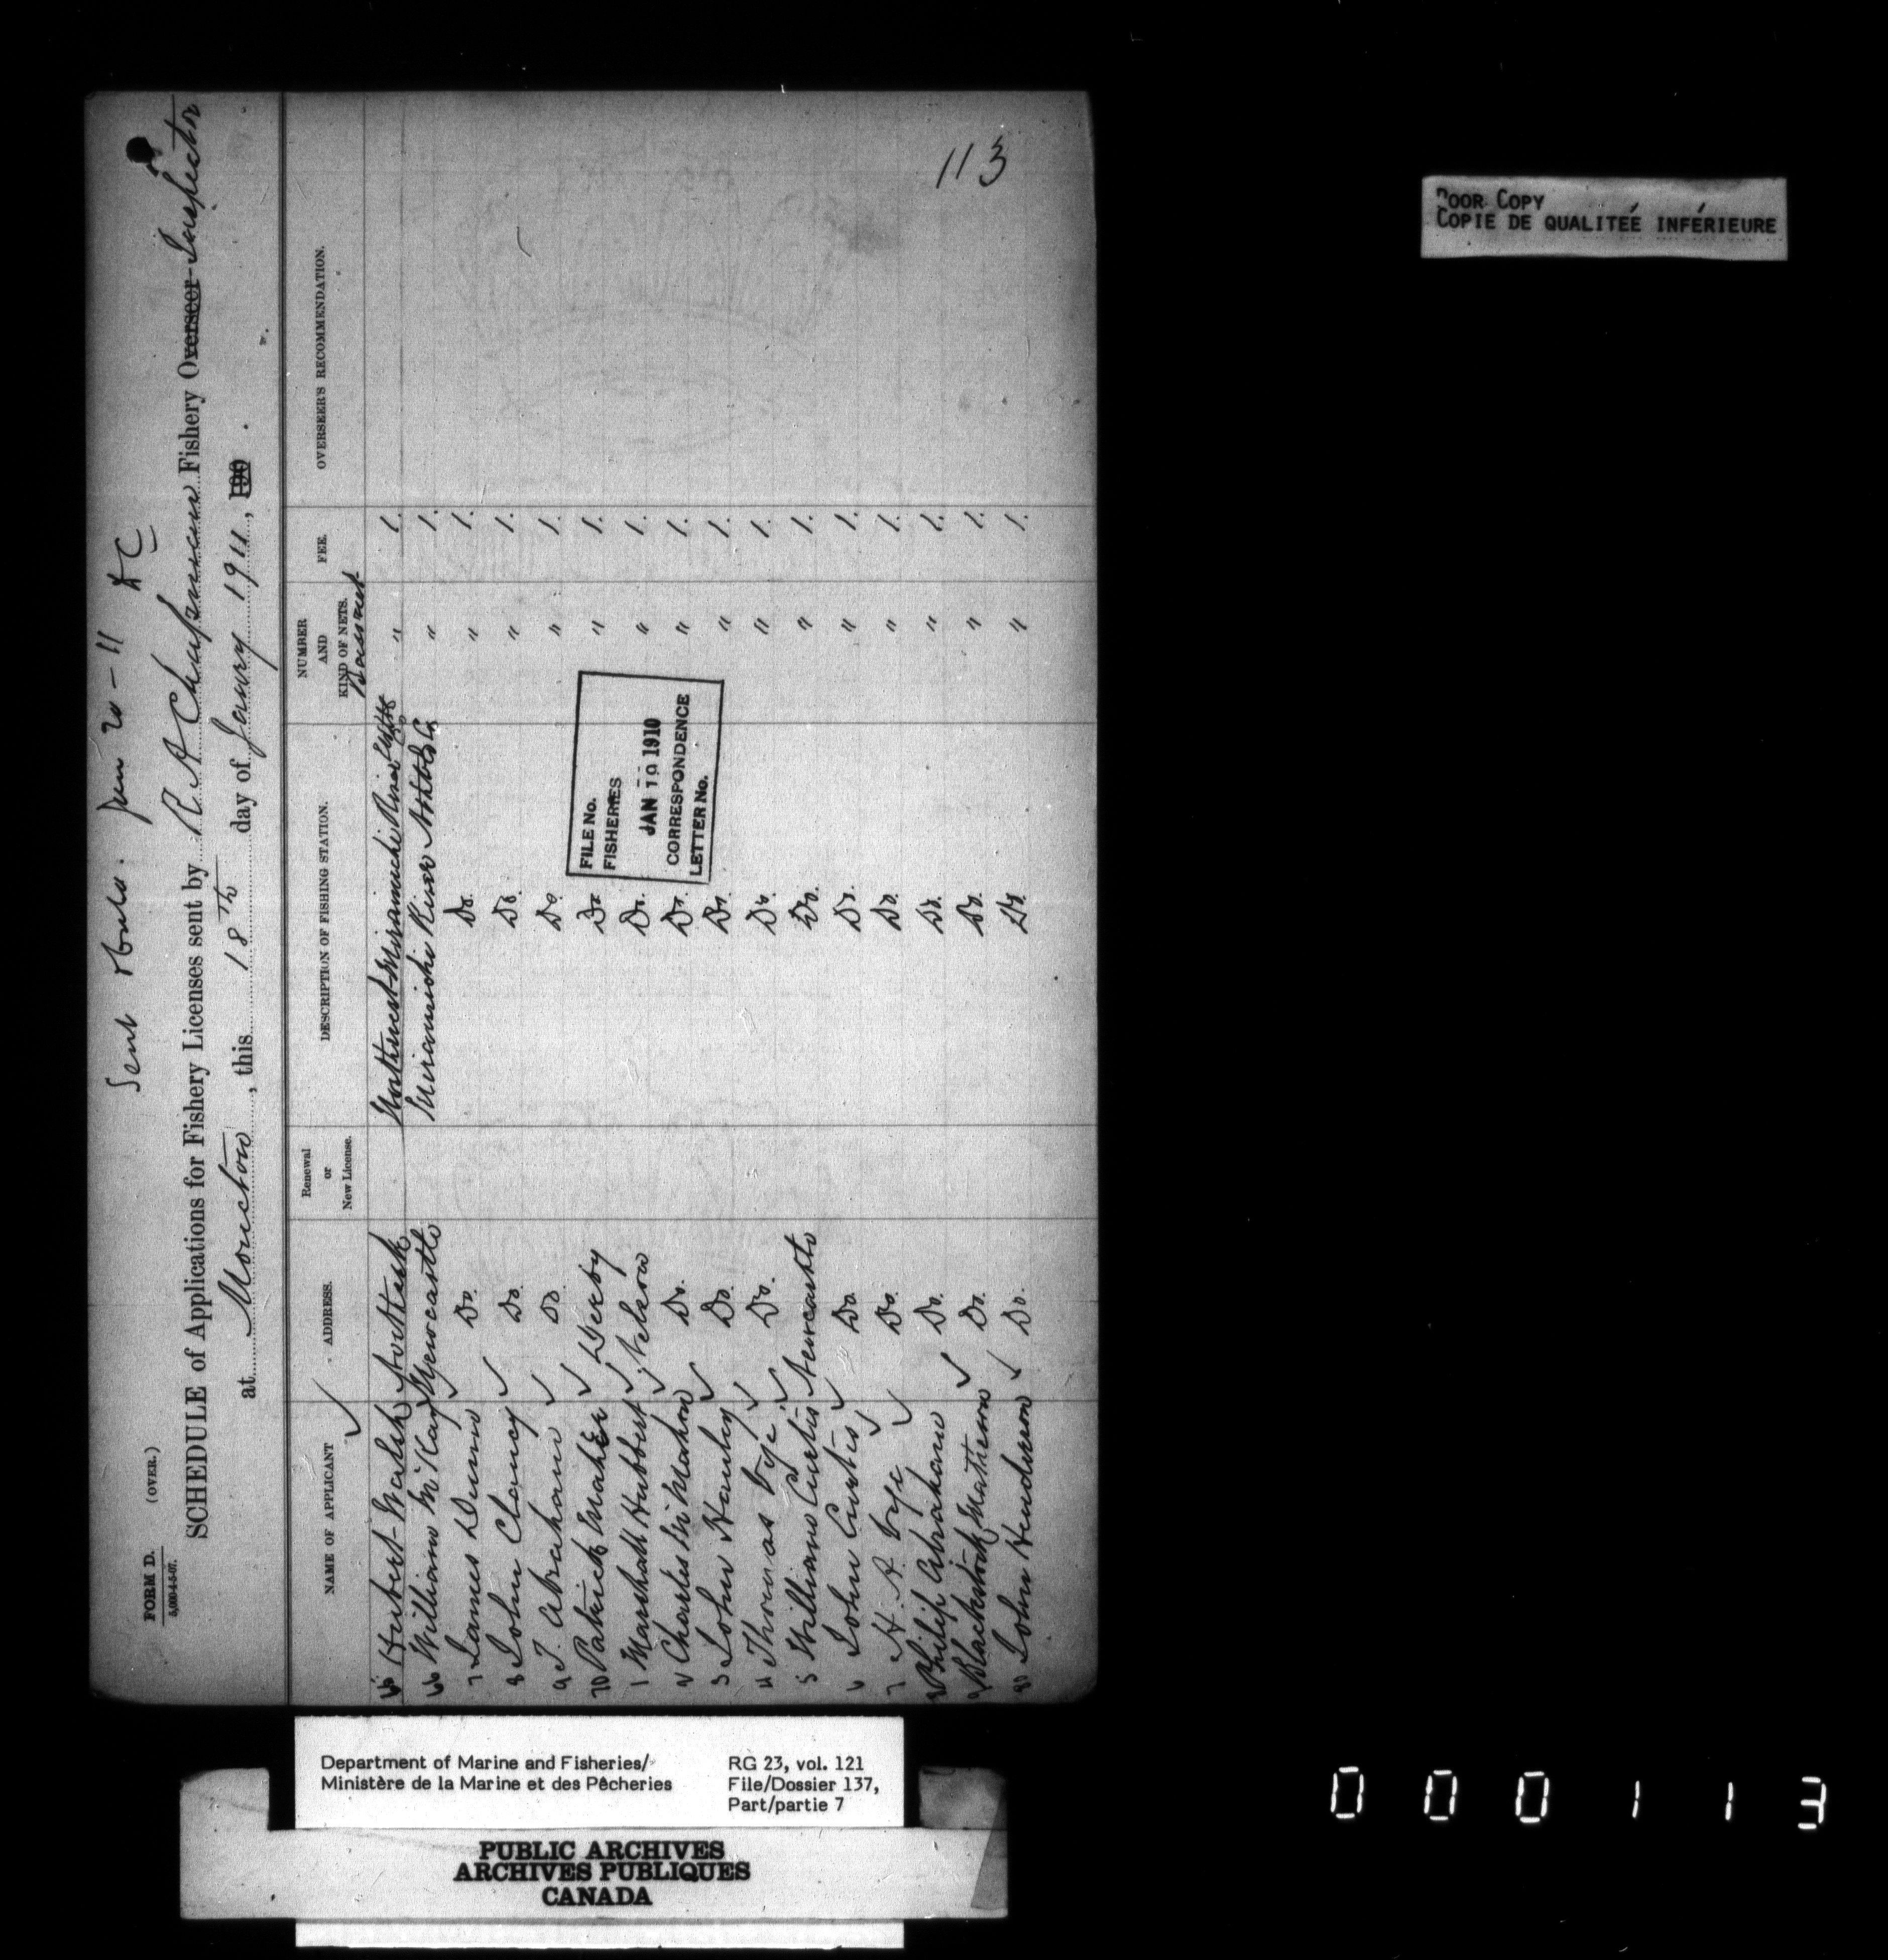 Sent Jan 20-11
FORM D. (OVER.)
5,000-4-5-07.
113
SCHEDULE of Applications for Fishery Licenses sent by R A Chapman Fishery Overseer Inspector
at Moncton, this 18th day of January 1911, 190 .
NAME OF APPLICANT ADDRESS. Renewal or New License. DESCRIPTION OF FISHING STATION. NUMBER AND KIND OF NETS. FEE. OVERSEER'S RECOMMENDATION.
65 Hubert Walsh Northwest Miramichi River " 1.
66 William McKay Newcastle Miramichi River " 1.
7 James Dunn Do. Do. " 1.
8 John Clancy Do. Do. " 1.
9 T. Abraham Do. Do. " 1.
70 Patrick Maher Derby Do. " 1.
1 Marshall Hubbert Nelson Do. " 1.
2 Charles McMahon Do. Do. " 1.
3 John Hanley Do. Do. " 1.
4 Thomas Vye Do. Do. " 1.
5 William Curtis Newcastle Do. " 1.
6 John Curtis Do. Do. " 1.
7 H. A. Vye Do. Do. " 1.
8 Philip Abraham Do. Do. " 1.
9 Blackstock Matheson Do. Do. " 1.
80 John Henderson Do. Do. " 1.
FILE No.
FISHERIES
JAN 19 1910
CORRESPONDENCE
LETTER No.
POOR COPY
COPIE DE QUALITEÉ INFÉRIEURE
Department of Marine and Fisheries/
Ministère de la Marine et des Pêcheries
RG 23, vol. 121
File/Dossier 137,
Part/partie 7
PUBLIC ARCHIVES
ARCHIVES PUBLIQUES
CANADA
000113